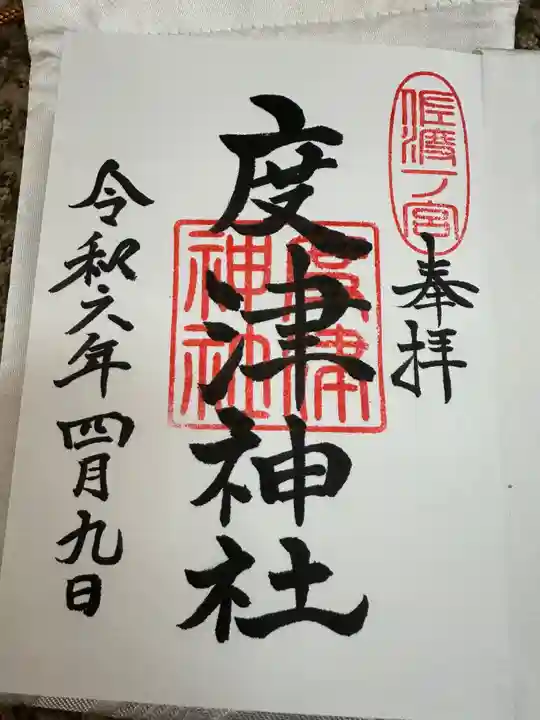 佐渡一ノ宮
奉拝
度津神社
度津神社
令和六年四月九日